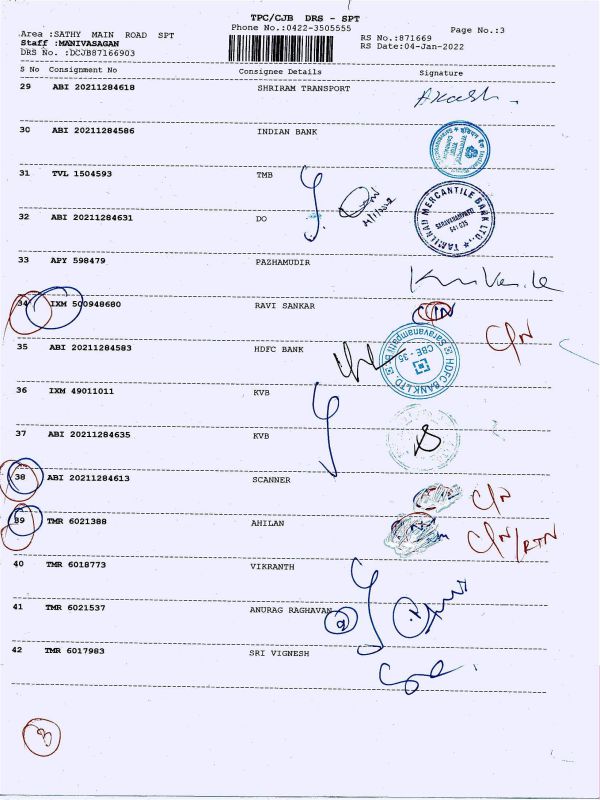 TPC/CJB DRS - SPT
Phone No.:0422-3505555
Page No.:3
Area :SATHY MAIN ROAD SPT
Staff :MANIVASAGAN
DRS No. :DCJB87166903
RS No.:871669
RS Date:04-Jan-2022
S No Consignment No Consignee Details Signature
29 ABI 20211284618 SHRIRAM TRANSPORT Akash
30 ABI 20211284586 INDIAN BANK
31 TVL 1504593 TMB
32 ABI 20211284631 DO
TAMILNAD MERCANTILE BANK LTD.,
SARAVANAMPATTI
641 035
33 APY 598479 PAZHAMUDIR
34 IXM 500948680 RAVI SANKAR C/N
C/N
35 ABI 20211284583 HDFC BANK
HDFC BANK LTD.
Saravanampatti B
CBE. 35
36 IXM 49011011 KVB
37 ABI 20211284635 KVB
38 ABI 20211284613 SCANNER C/N
39 TMR 6021388 AHILAN C/N/RTN
40 TMR 6018773 VIKRANTH
41 TMR 6021537 ANURAG RAGHAVAN
42 TMR 6017983 SRI VIGNESH
3